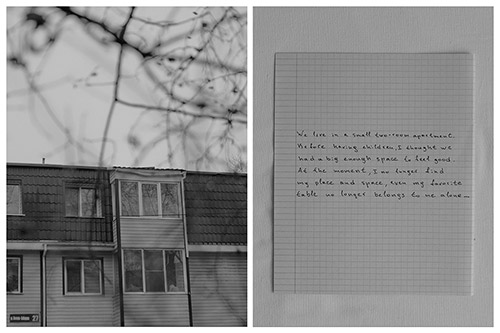 We live in a small two-room apartment.
Before having children, I thought we
had a big enough space to feel good.
At the moment, I no longer find
my place and space, even my favorite
table no longer belongs to me alone...
27